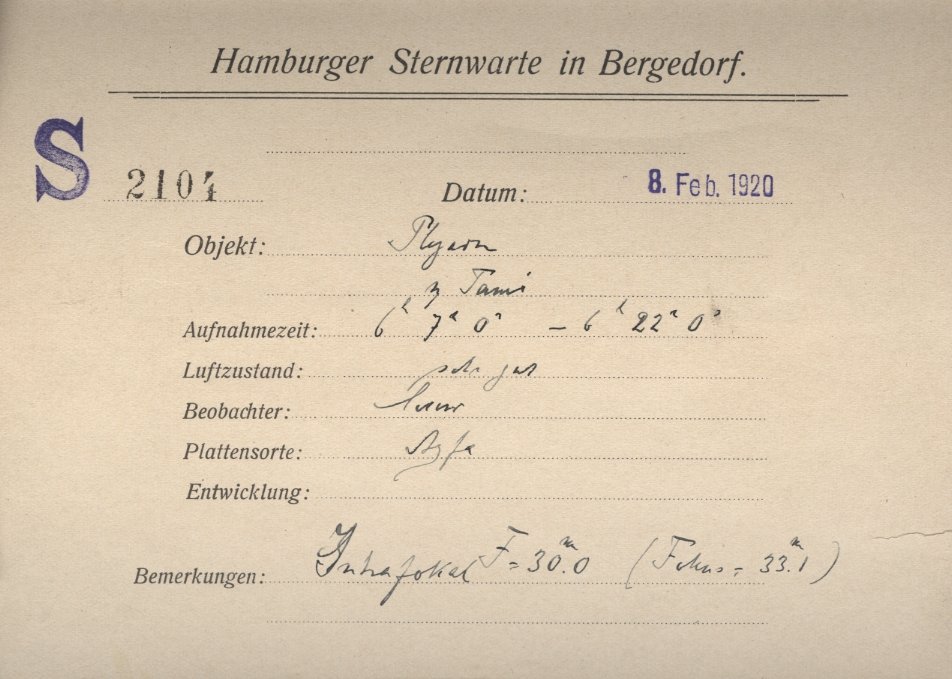 Hamburger Sternwarte in Bergedorf.
S 2104 Datum: 8. Feb. 1920
Objekt:
η Tauri
Aufnahmezeit: 6ʰ 7ᵐ 0ˢ – 6ʰ 22ᵐ 0ˢ
Luftzustand: sehr gut
Beobachter:
Plattensorte: Agfa
Entwicklung:
Bemerkungen: Intrafokal F = 30.0ᵐᵐ (Fokus = 33.1ᵐᵐ)